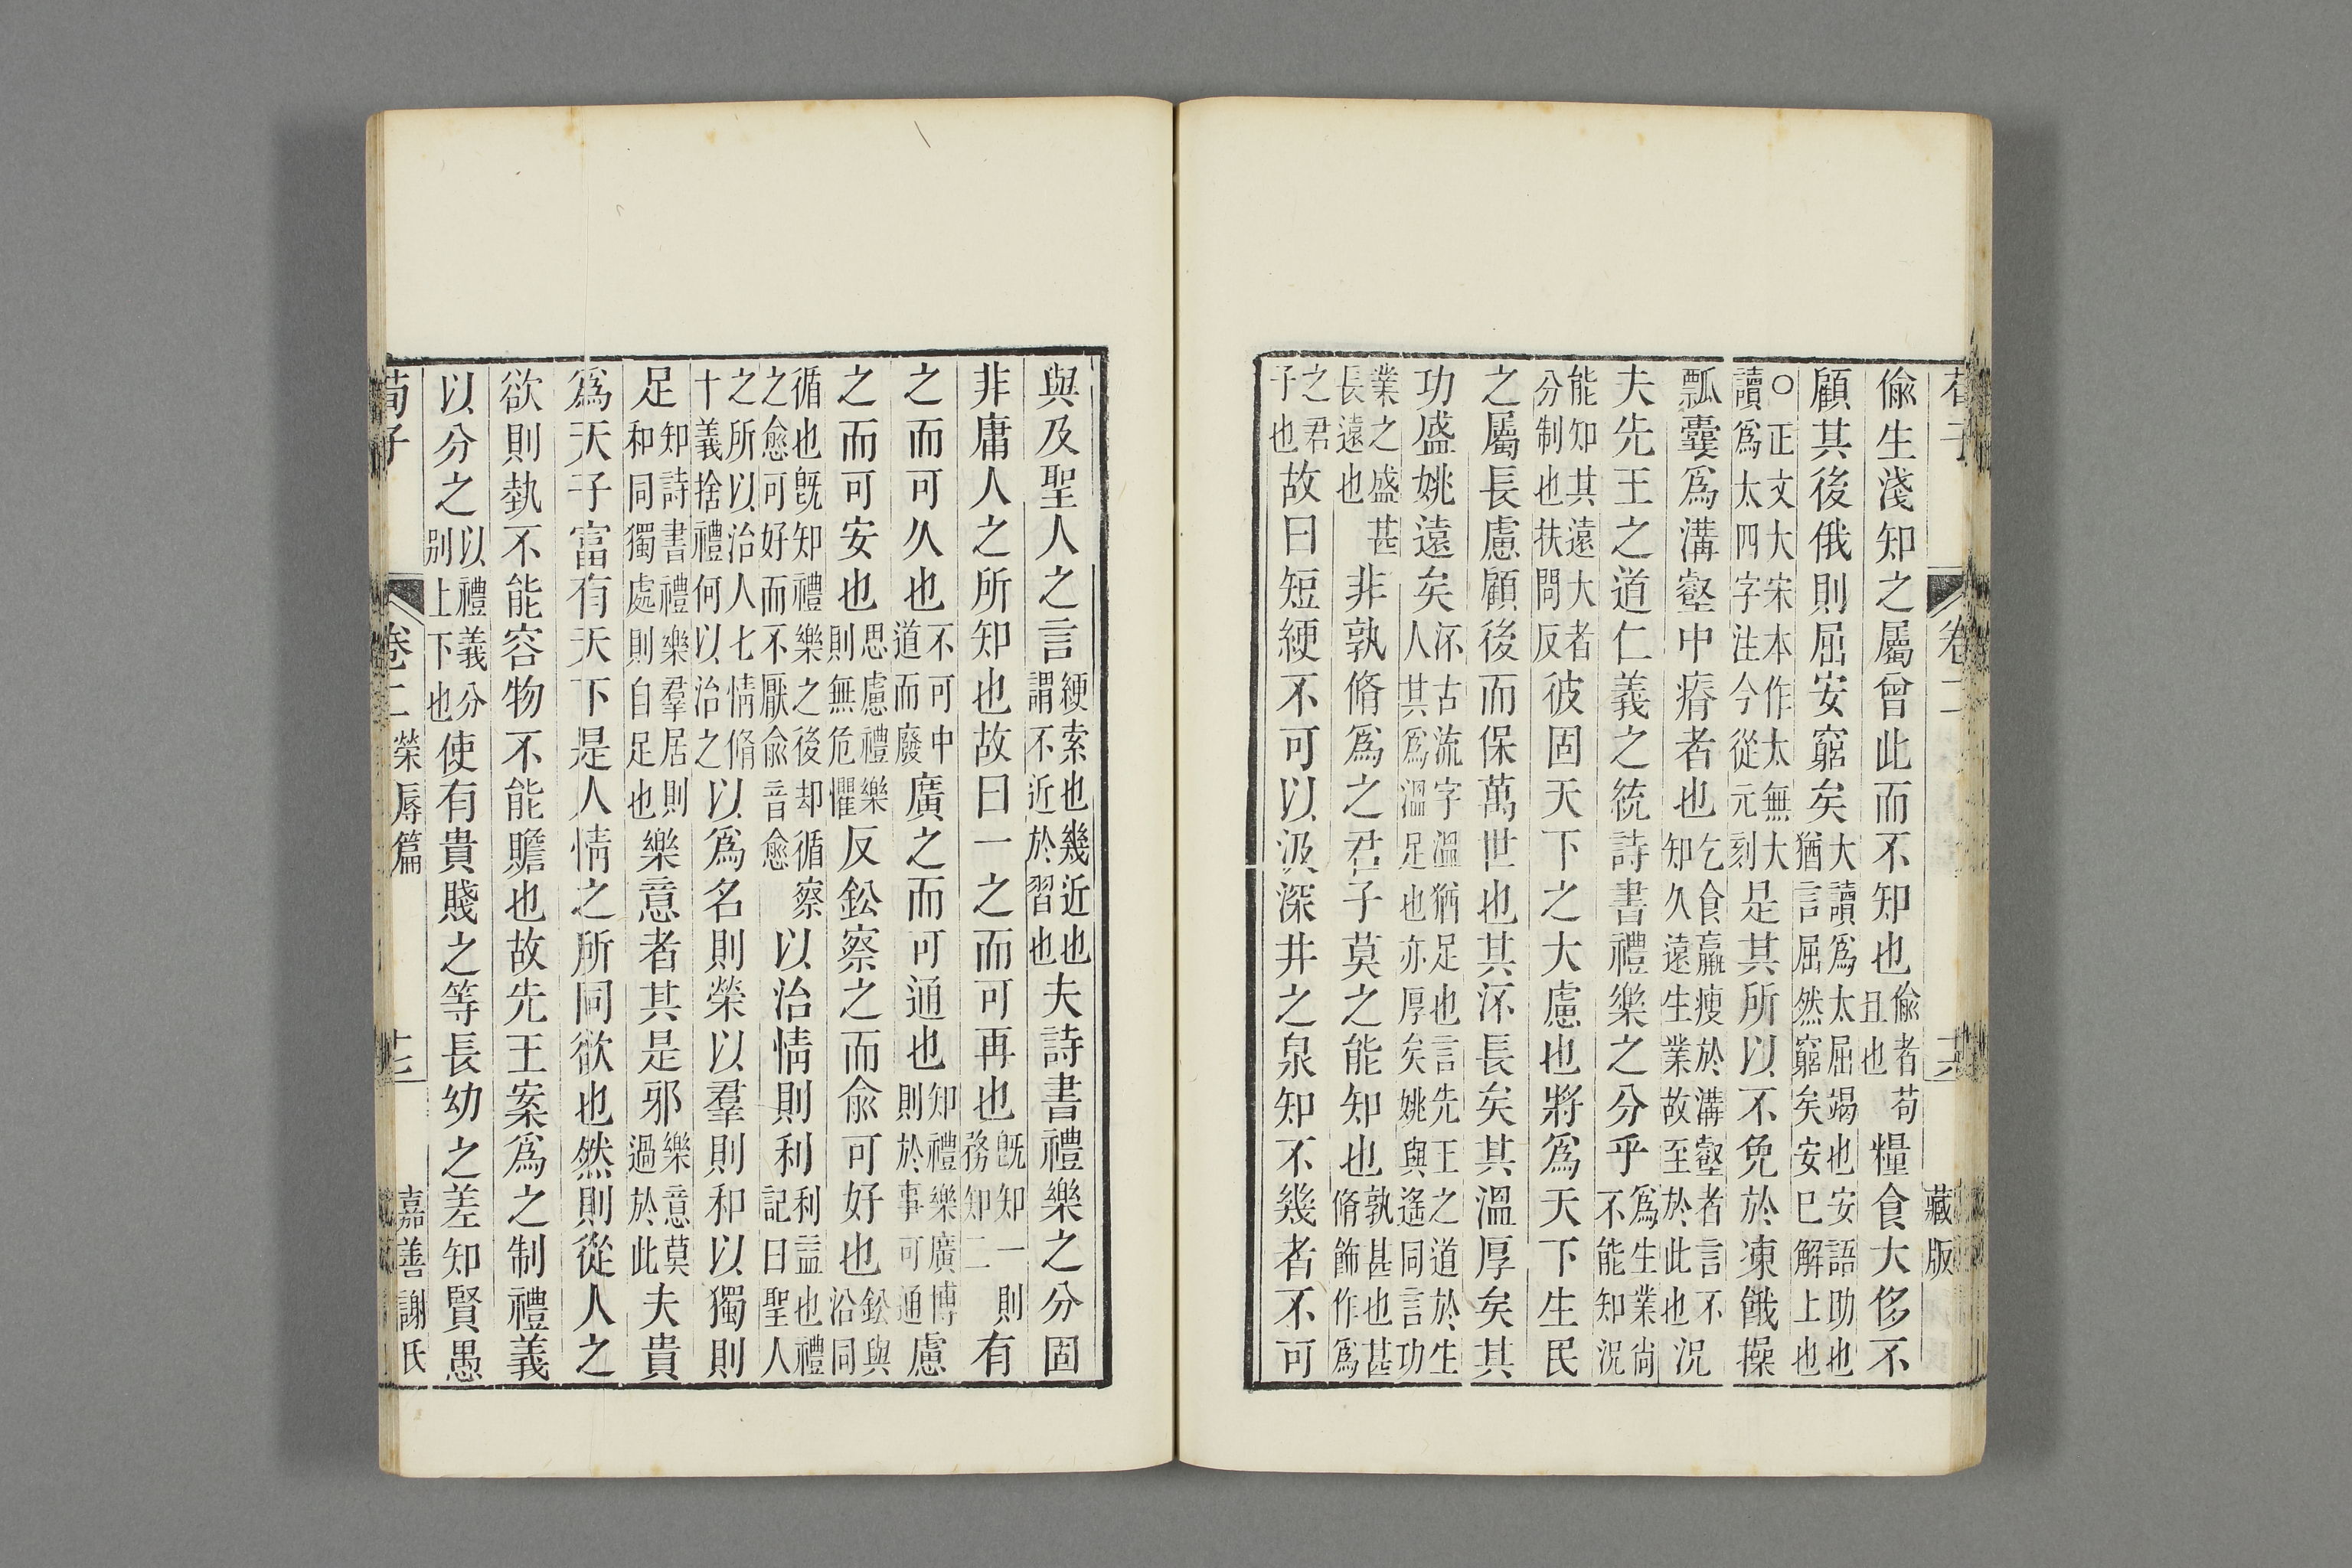 荀子　卷二　十六　藏版
偸生淺知之屬曾此而不知也偸者苟且也糧食大侈不
顧其後俄則屈安窮矣大讀爲太屈竭也安語助也猶言屈然窮矣安巳解上也
○正文大宋本作太無大讀爲太四字注今從元刻是其所以不免於凍餓操
瓢囊爲溝壑中瘠者也乞食羸瘦於溝壑者言不知久遠生業故至於此也況
夫先王之道仁義之統詩書禮樂之分乎爲生業尙不能知況
能知其遠大者分制也扶問反彼固天下之大慮也將爲天下生民
之屬長慮顧後而保萬世也其㳅長矣其溫厚矣其
功盛姚遠矣㳅古流字溫猶足也言先王之道於生人其爲溫足也亦厚矣姚與遙同言功
業之盛甚長遠也非孰脩爲之君子莫之能知也孰甚也甚脩飾作爲
之君子也故曰短綆不可以汲深井之泉知不幾者不可
與及聖人之言綆索也幾近也謂不近於習也夫詩書禮樂之分固
非庸人之所知也故曰一之而可再也旣知一則務知二有
之而可久也不可中道而廢廣之而可通也知禮樂廣博則於事可通慮
之而可安也思慮禮樂則無危懼反鈆察之而俞可好也鈆與沿同
循也旣知禮樂之後却循察之愈可好而不厭俞音愈以治情則利利益也禮記曰聖人
之所以治人七情脩十義捨禮何以治之以爲名則榮以羣則和以獨則
足知詩書禮樂羣居則和同獨處則自足也樂意者其是邪樂意莫過於此夫貴
爲天子富有天下是人情之所同欲也然則從人之
欲則埶不能容物不能贍也故先王案爲之制禮義
以分之以禮義分別上下也使有貴賤之等長幼之差知賢愚
荀子　卷二榮辱篇　十七　嘉善謝氏